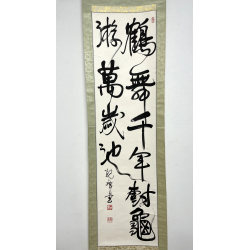 鶴舞千年樹龜
游萬歲池